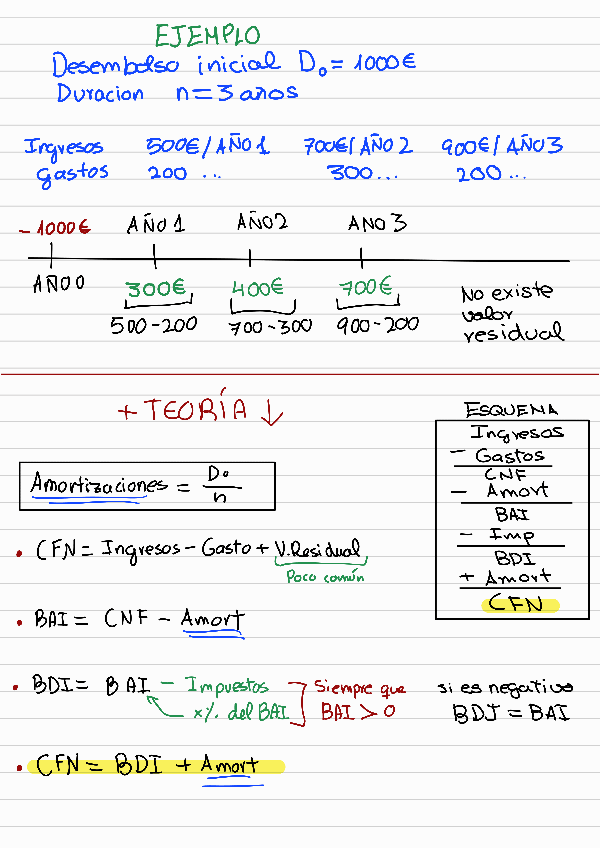 EJEMPLO
Desembolso inicial D₀ = 1000€
Duracion n = 3 años
Ingresos 500€/AÑO 1 700€/AÑO 2 900€/AÑO 3
Gastos 200 ... 300... 200 ...
- 1000€ AÑO 1 AÑO 2 ANO 3
AÑO 0 300€ 400€ 700€
500-200 700-300 900-200
No existe
valor
residual
+ TEORÍA ↓
Amortizaciones = D₀/n
• CFN = Ingresos - Gasto + V.Residual
Poco común
• BAI = CNF - Amort
• BDI = BAI - Impuestos
x% del BAI
Siempre que
BAI > 0
si es negativo
BDI = BAI
• CFN = BDI + Amort
ESQUEMA
Ingresos
- Gastos
CNF
- Amort
BAI
- Imp
BDI
+ Amort
CFN